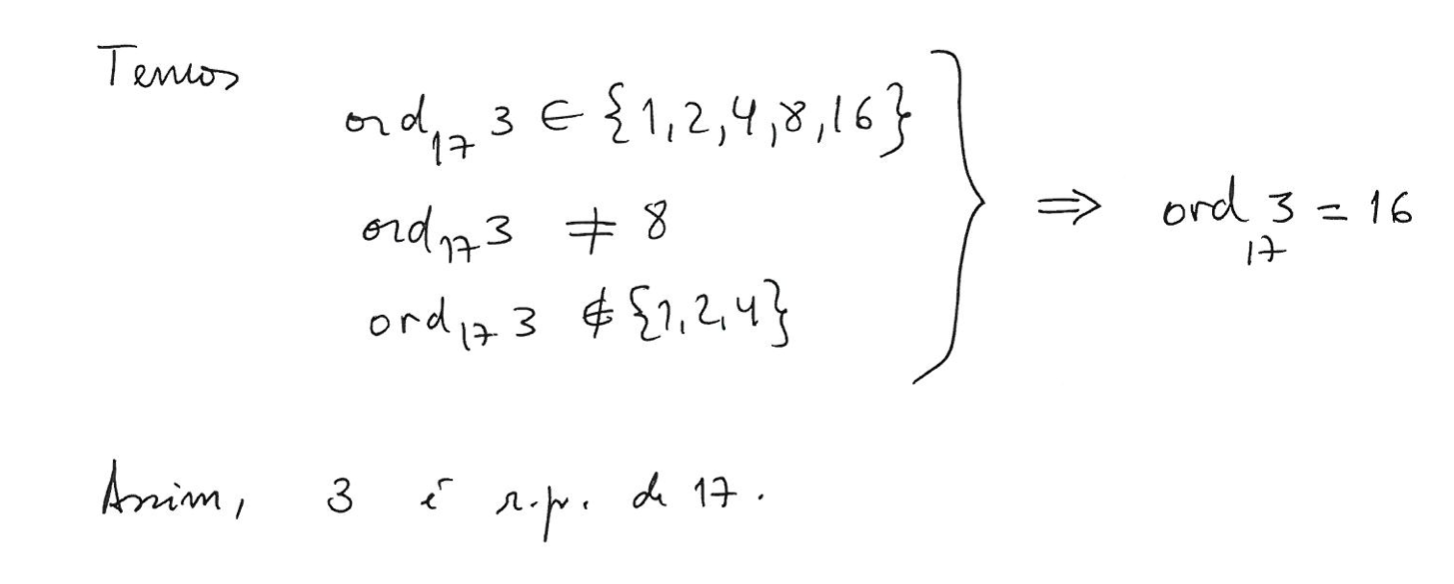 Temos
ord₁₇ 3 ∈ {1,2,4,8,16}
ord₁₇ 3 ≠ 8
ord₁₇ 3 ∉ {1,2,4}
⇒ ord₁₇ 3 = 16
Assim, 3 é r.p. de 17.